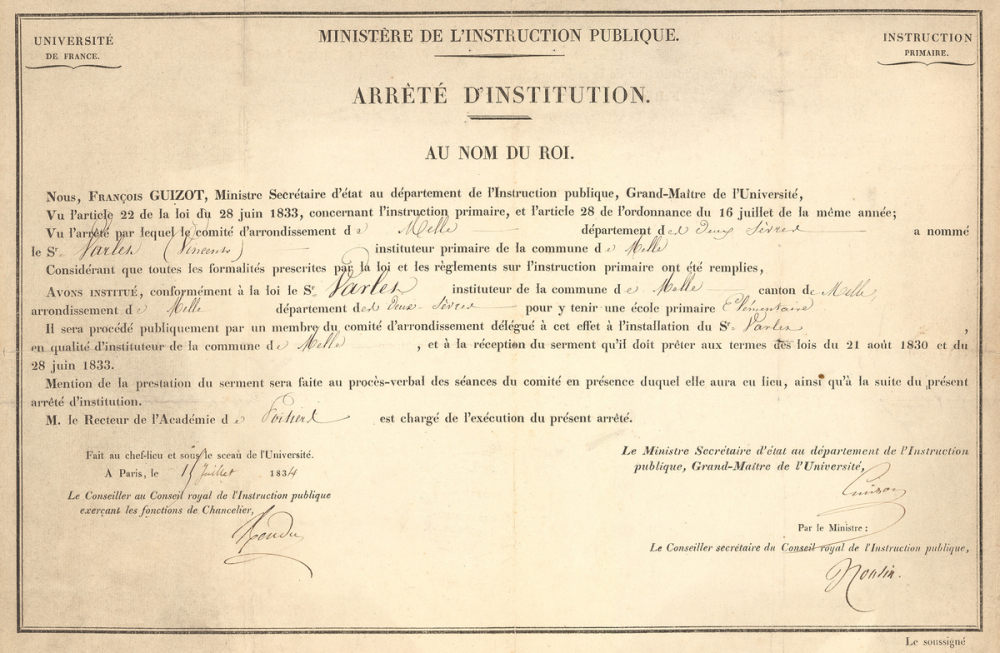 UNIVERSITÉ
DE FRANCE.
MINISTÈRE DE L'INSTRUCTION PUBLIQUE.
INSTRUCTION
PRIMAIRE.
ARRÊTÉ D'INSTITUTION.
AU NOM DU ROI.
Nous, FRANÇOIS GUIZOT, Ministre Secrétaire d'état au département de l'Instruction publique, Grand-Maître de l'Université,
Vu l'article 22 de la loi du 28 juin 1833, concernant l'instruction primaire, et l'article 28 de l'ordonnance du 16 juillet de la même année;
Vu l'arrêté par lequel le comité d'arrondissement de Melle département des Deux Sèvres a nommé
le Sr. Varles (Vincent) instituteur primaire de la commune de Melle
Considérant que toutes les formalités prescrites par la loi et les règlements sur l'instruction primaire ont été remplies,
AVONS INSTITUÉ, conformément à la loi le Sr. Varles instituteur de la commune de Melle canton de Melle,
arrondissement de Melle département des deux-Sèvres pour y tenir une école primaire Elémentaire
Il sera procédé publiquement par un membre du comité d'arrondissement délégué à cet effet à l'installation du Sr. Varles ,
en qualité d'instituteur de la commune de Melle , et à la réception du serment qu'il doit prêter aux termes des lois du 21 août 1830 et du
28 juin 1833.
Mention de la prestation du serment sera faite au procès-verbal des séances du comité en présence duquel elle aura eu lieu, ainsi qu'à la suite du présent
arrêté d'institution.
M. le Recteur de l'Académie de Poitiers est chargé de l'exécution du présent arrêté.
Fait au chef-lieu et sous le sceau de l'Université.
A Paris, le 15 Juillet 1834
Le Conseiller au Conseil royal de l'Instruction publique
exerçant les fonctions de Chancelier,
Rendu
Le Ministre Secrétaire d'état au département de l'Instruction
publique, Grand-Maître de l'Université,
Guizot
Par le Ministre :
Le Conseiller secrétaire du Conseil royal de l'Instruction publique,
Le soussigné